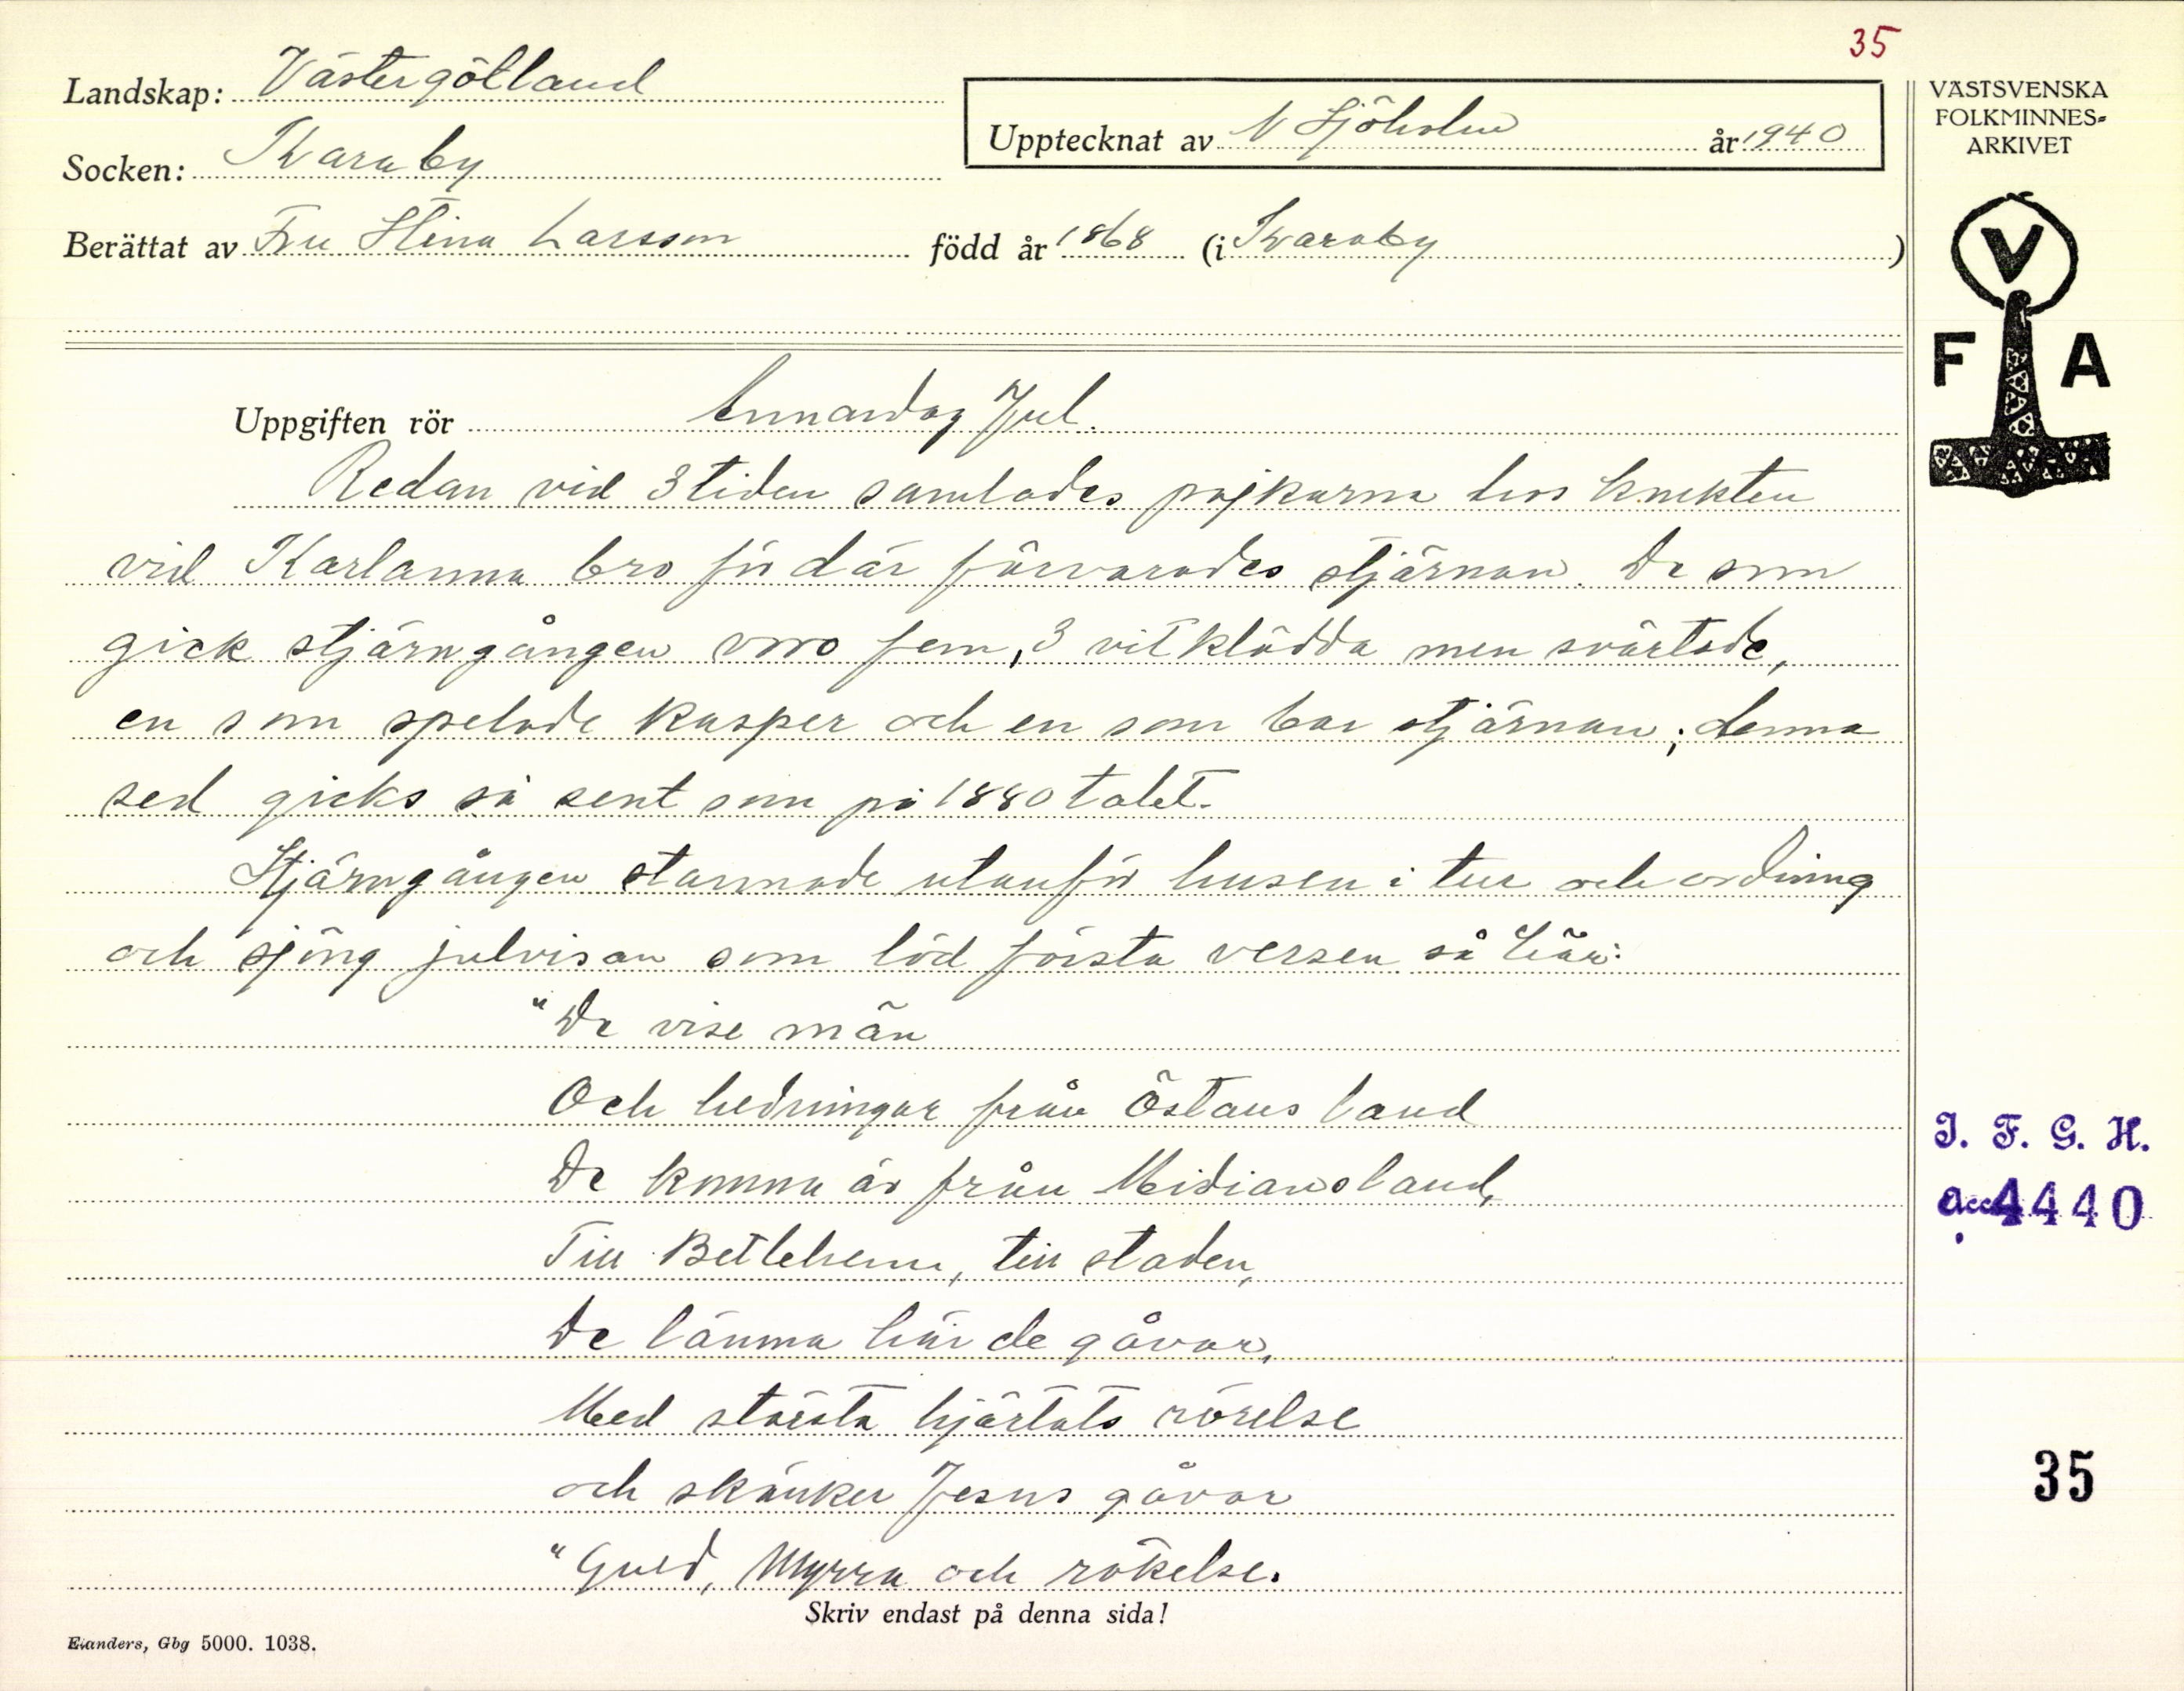 35
Landskap: Västergötland
Upptecknat av N Sjöholm år 1940
Socken: Kvaraby
Berättat av Fru Stina Larsson född år 1868 (i Kvaraby)
VÄSTSVENSKA
FOLKMINNES-
ARKIVET
V
F A
Uppgiften rör Annandag Jul.
Redan vid 3 tiden samlades pojkarna hos knekten
vid Karlanna bro för där förvarades stjärnan. De som
gick stjärngången voro fem, 3 vitklädda men svärtade,
en som spelade kasper och en som bar stjärnan; denna
sed gicks så sent som på 1880 talet.
Stjärngången stannade utanför husen i tur och ordning
och sjöng julvisan som löd första versen så här:
"De vise män
Och hedningar från Östans land
De komma är från Midians land,
Till Betlehem, till staden,
De lämna här de gåvor,
Med största hjärtats rörelse
och skänker Jesus gåvor
"Guld, Myrra och rökelse.
Skriv endast på denna sida!
Elanders, Gbg 5000. 1038.
I. F. G. H.
acc. 4440
35